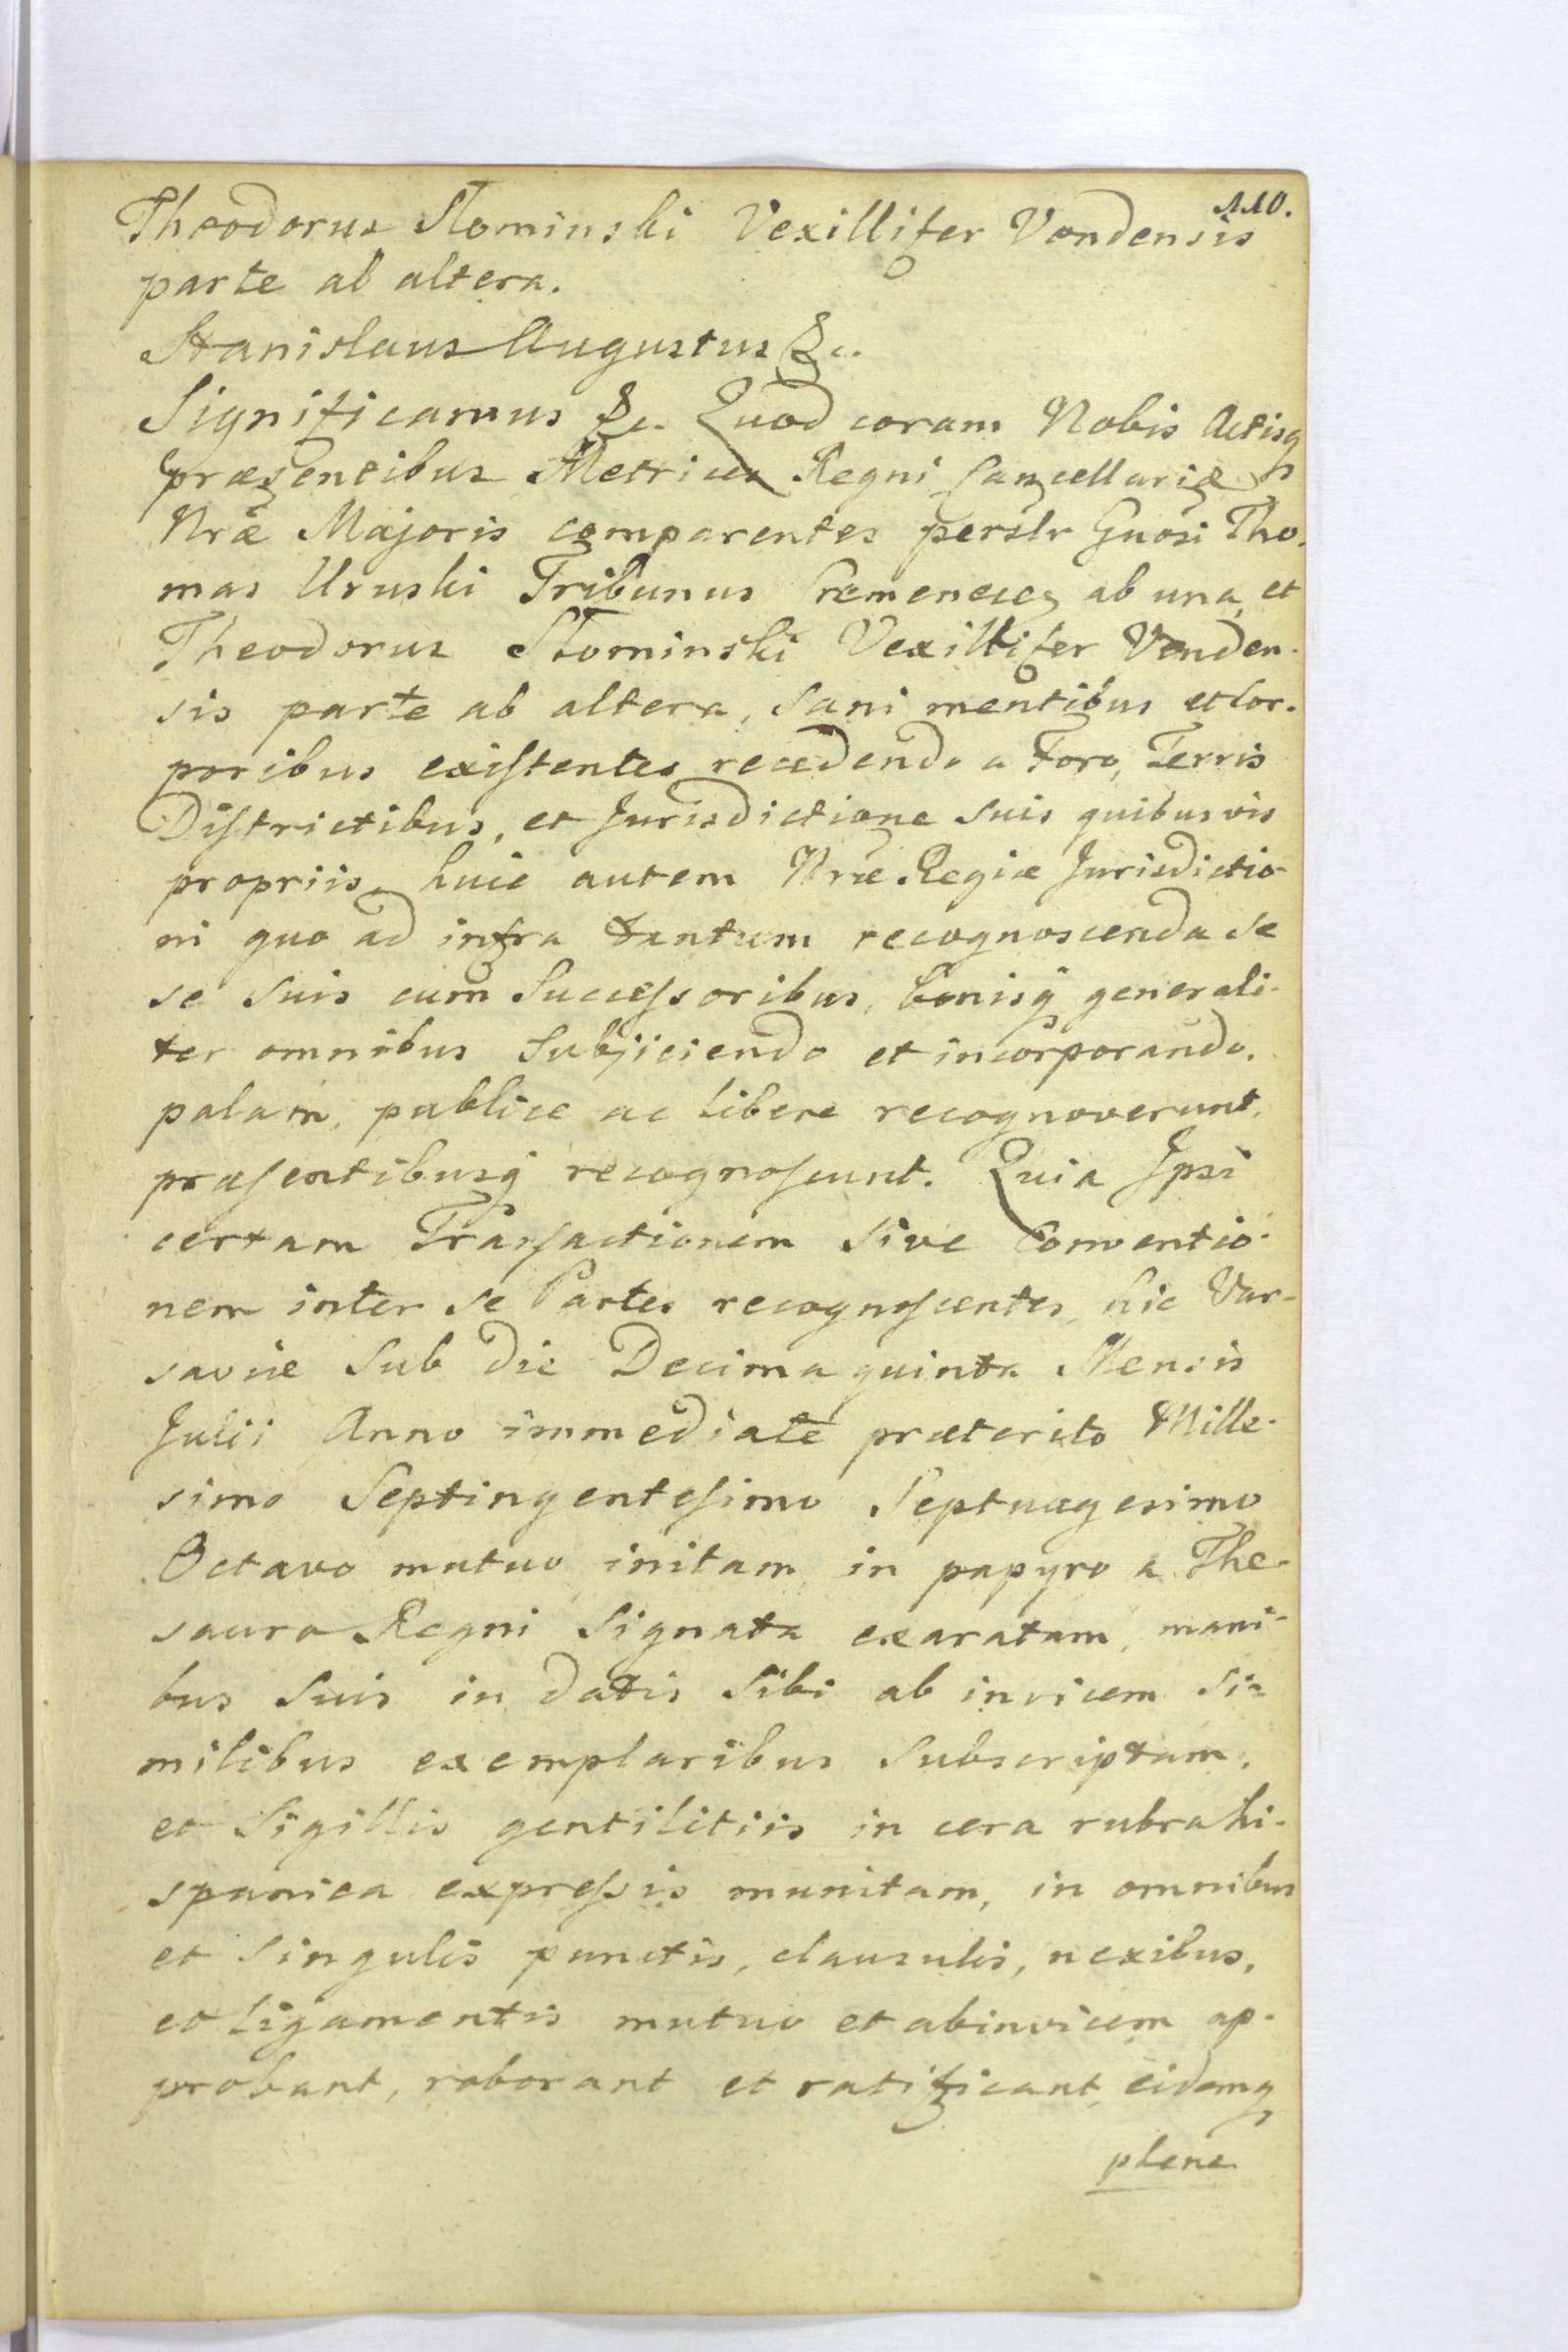 110.
Theodorus Słominski Vexillifer Vendensis
parte ab altera.
Stanislaus Augustus &c.
Significamus &c. Quod coram Nobis Actisq
præsentibus Metrices Regni Cancellariæ
Nræ Majoris comparentes perslr Gnosi Tho-
mas Uruski Tribunus Cremenecen ab una et
Theodorus Słominski Vexillifer Venden-
sis parte ab altera, Sani mentibus et Cor-
poribus existentes recedendo a Foro, Terris
Districtibus, et Jurisdictione Suis quibusvis
propriis, huic autem Nræ Regiæ Jurisdictio-
ni quo ad infra tantum recognoscenda Se
se Suis cum Successoribus, bonisq generali-
ter omnibus Subjiciendo et incorporando.
palam, publice ac libere recognoverunt,
præsentibusq recognoscunt. Quia Ipsi
certam Transactionem Sive Conventio-
nem inter Se Partes recognoscentes, hic Var-
saviæ Sub die Decima quinta Mensis
Julii Anno immediate præterito Mille-
simo Septingentesimo Septuagesimo
Octavo mutuo initam, in papyro a The-
sauro Regni Signata exaratam, mani-
bus Suis in datis Sibi ab invicem Si-
milibus exemplaribus Subscriptam,
et Sigillis gentilitiis in cera rubra hi-
spanica expressis munitam, in omnibus
et Singulis punctis, clausulis, nexibus,
et ligamentis mutuo et abinvicem ap-
probant, roborant et ratificant, eidemq
plene